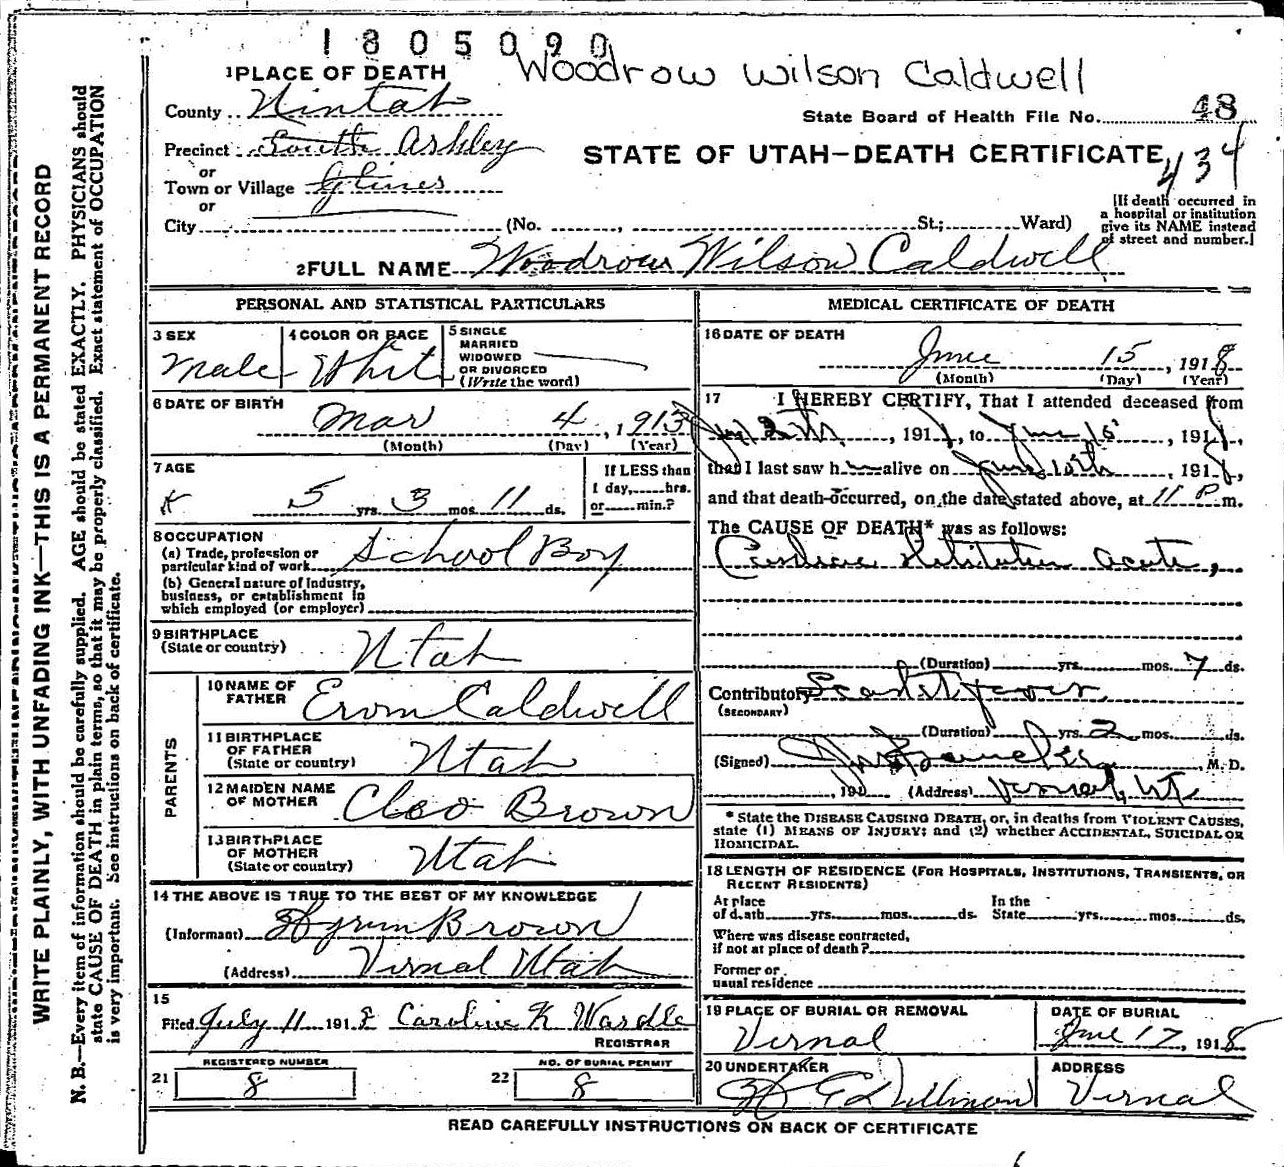 1805090
Woodrow Wilson Caldwell
1 PLACE OF DEATH
County Uintah
State Board of Health File No. 48
Precinct South Ashley
STATE OF UTAH—DEATH CERTIFICATE
434
or
Town or Village Glines
or
City (No. , St.; Ward)
[If death occurred in
a hospital or institution
give its NAME instead
of street and number.]
2 FULL NAME Woodrow Wilson Caldwell
PERSONAL AND STATISTICAL PARTICULARS
3 SEX
Male
4 COLOR OR RACE
White
5 SINGLE
MARRIED
WIDOWED
OR DIVORCED
(Write the word)
6 DATE OF BIRTH
Mar 4, 1913
(Month) (Day) (Year)
7 AGE
5 yrs. 3 mos. 11 ds.
If LESS than
1 day, hrs.
or min.?
8 OCCUPATION
(a) Trade, profession or
particular kind of work School Boy
(b) General nature of Industry,
business, or establishment in
which employed (or employer)
9 BIRTHPLACE
(State or country) Utah
PARENTS
10 NAME OF
FATHER Erom Caldwell
11 BIRTHPLACE
OF FATHER
(State or country) Utah
12 MAIDEN NAME
OF MOTHER Cleo Brown
13 BIRTHPLACE
OF MOTHER
(State or country) Utah
14 THE ABOVE IS TRUE TO THE BEST OF MY KNOWLEDGE
(Informant) Hyrum Brown
(Address) Vernal Utah
15
Filed July 11 1918 Caroline K Wardle
REGISTRAR
REGISTERED NUMBER
21 8
NO. OF BURIAL PERMIT
22 8
MEDICAL CERTIFICATE OF DEATH
16 DATE OF DEATH
June 15, 1918
(Month) (Day) (Year)
17 I HEREBY CERTIFY, That I attended deceased from
, 1918, to June 15, 1918,
that I last saw him alive on June 15th, 1918,
and that death occurred, on the date stated above, at 11 P m.
The CAUSE OF DEATH* was as follows:
Cardiac acute,
(Duration) yrs. mos. 7 ds.
Contributory Scarlet fever
(SECONDARY)
(Duration) yrs. 2 mos. ds.
(Signed) , M. D.
, 191 (Address) Vernal, Ut
* State the DISEASE CAUSING DEATH, or, in deaths from VIOLENT CAUSES,
state (1) MEANS OF INJURY; and (2) whether ACCIDENTAL, SUICIDAL OR
HOMICIDAL.
18 LENGTH OF RESIDENCE (FOR HOSPITALS, INSTITUTIONS, TRANSIENTS, OR
RECENT RESIDENTS)
At place
of death yrs. mos. ds.
In the
State yrs. mos. ds.
Where was disease contracted,
if not at place of death?
Former or
usual residence
19 PLACE OF BURIAL OR REMOVAL
Vernal
DATE OF BURIAL
June 17, 1918
20 UNDERTAKER
ADDRESS
Vernal
READ CAREFULLY INSTRUCTIONS ON BACK OF CERTIFICATE
WRITE PLAINLY, WITH UNFADING INK—THIS IS A PERMANENT RECORD
N. B.—Every item of information should be carefully supplied. AGE should be stated EXACTLY. PHYSICIANS should
state CAUSE OF DEATH in plain terms, so that it may be properly classified. Exact statement of OCCUPATION
is very important. See instructions on back of certificate.